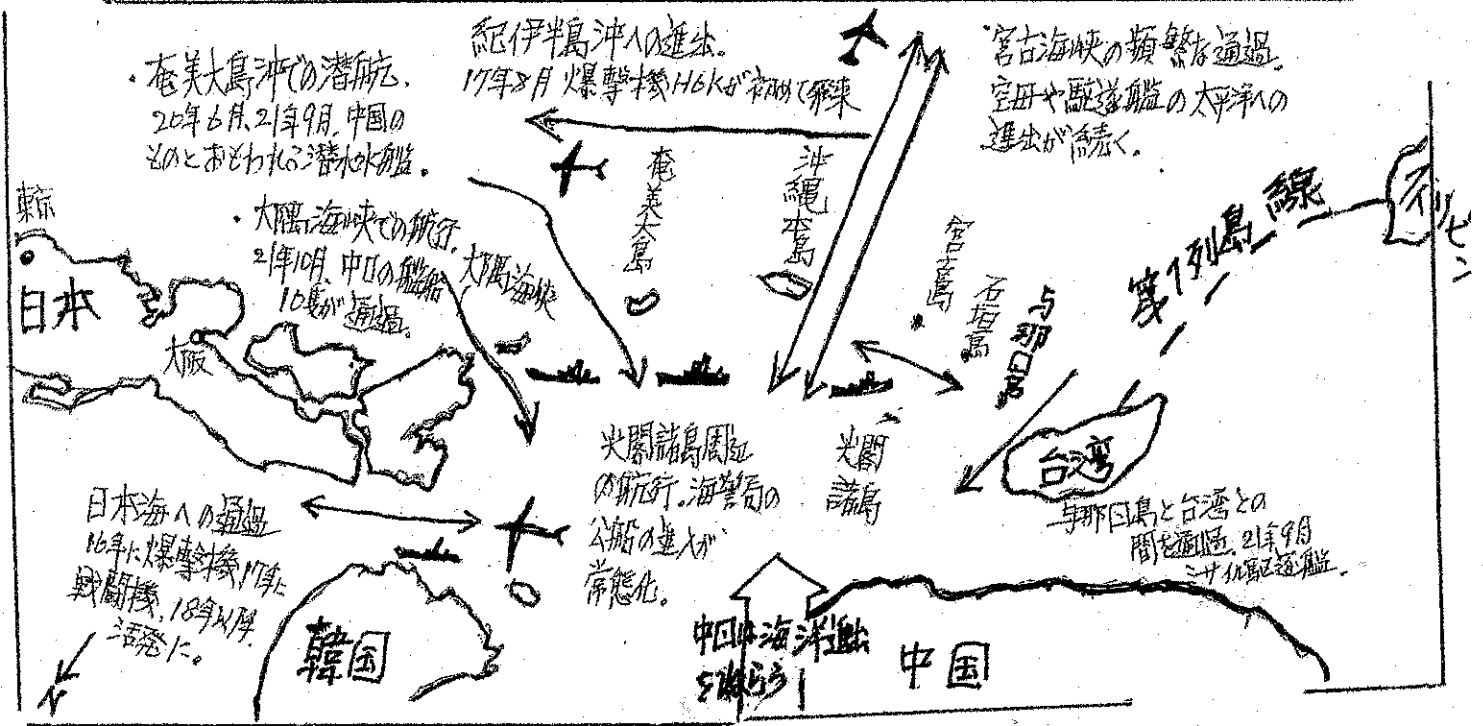 ・奄美大島沖での潜航、
20年6月、21年9月、中国の
ものとおもわれる潜水艦。
紀伊半島沖への進出。
17年8月 爆撃機H6Kが初めて飛来
・宮古海峡の頻繁な通過。
空母や駆逐艦の太平洋への
進出が続く。
・大隅海峡での航行。
21年10月、中ロの艦船
10隻が通過。
大隅海峡
奄美大島
沖縄本島
宮古島
石垣島
与那国島
第1列島線
フィリピン
東京
日本
大阪
台湾
尖閣諸島周辺
の航行。海警局の
公船の進入が
常態化。
尖閣
諸島
与那国島と台湾との
間を通過。21年9月
ミサイル駆逐艦。
日本海への通過
16年に爆撃機、17年に
戦闘機、18年以降
活発に。
N
韓国
中国は海洋進出
をねらう
中国